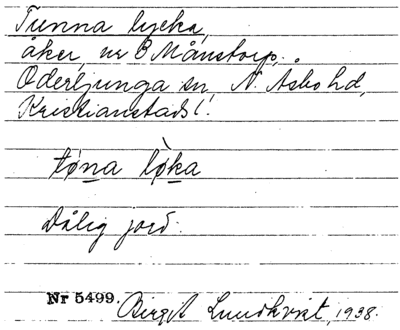 Tunna lycka,
åker, nr 3 Månstorp,
Oderljunga sn, N. Åsbo hd,
Kristianstads l.
tøna lø̀ka
Dålig jord.
Nr 5499. Birgit Lundkvist, 1938.